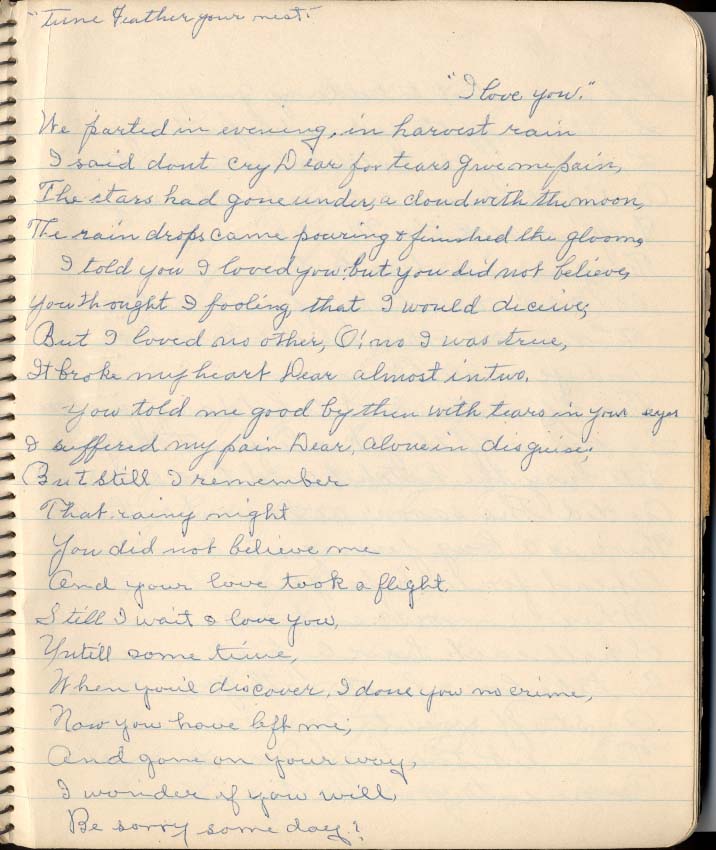 "Tune Feather your nest"
"I love you."
We parted in evening, in harvest rain
I said dont cry Dear for tears give me pain,
The stars had gone under, a cloud with the moon,
The rain drops came pouring & finished the gloom,
I told you I loved you, but you did not believe,
you thought I fooling, that I would deceive,
But I loved no other, O! no I was true,
It broke my heart Dear almost in two.
You told me good by then with tears in your eyes
I suffered my pain Dear, alone in disguise;
But still I remember
That rainy night
You did not believe me
And your love took a flight.
Still I wait & love you,
Untill some time,
When you'l discover, I done you no crime,
Now you have left me,
And gone on your way,
I wonder if you will
Be sorry some day?